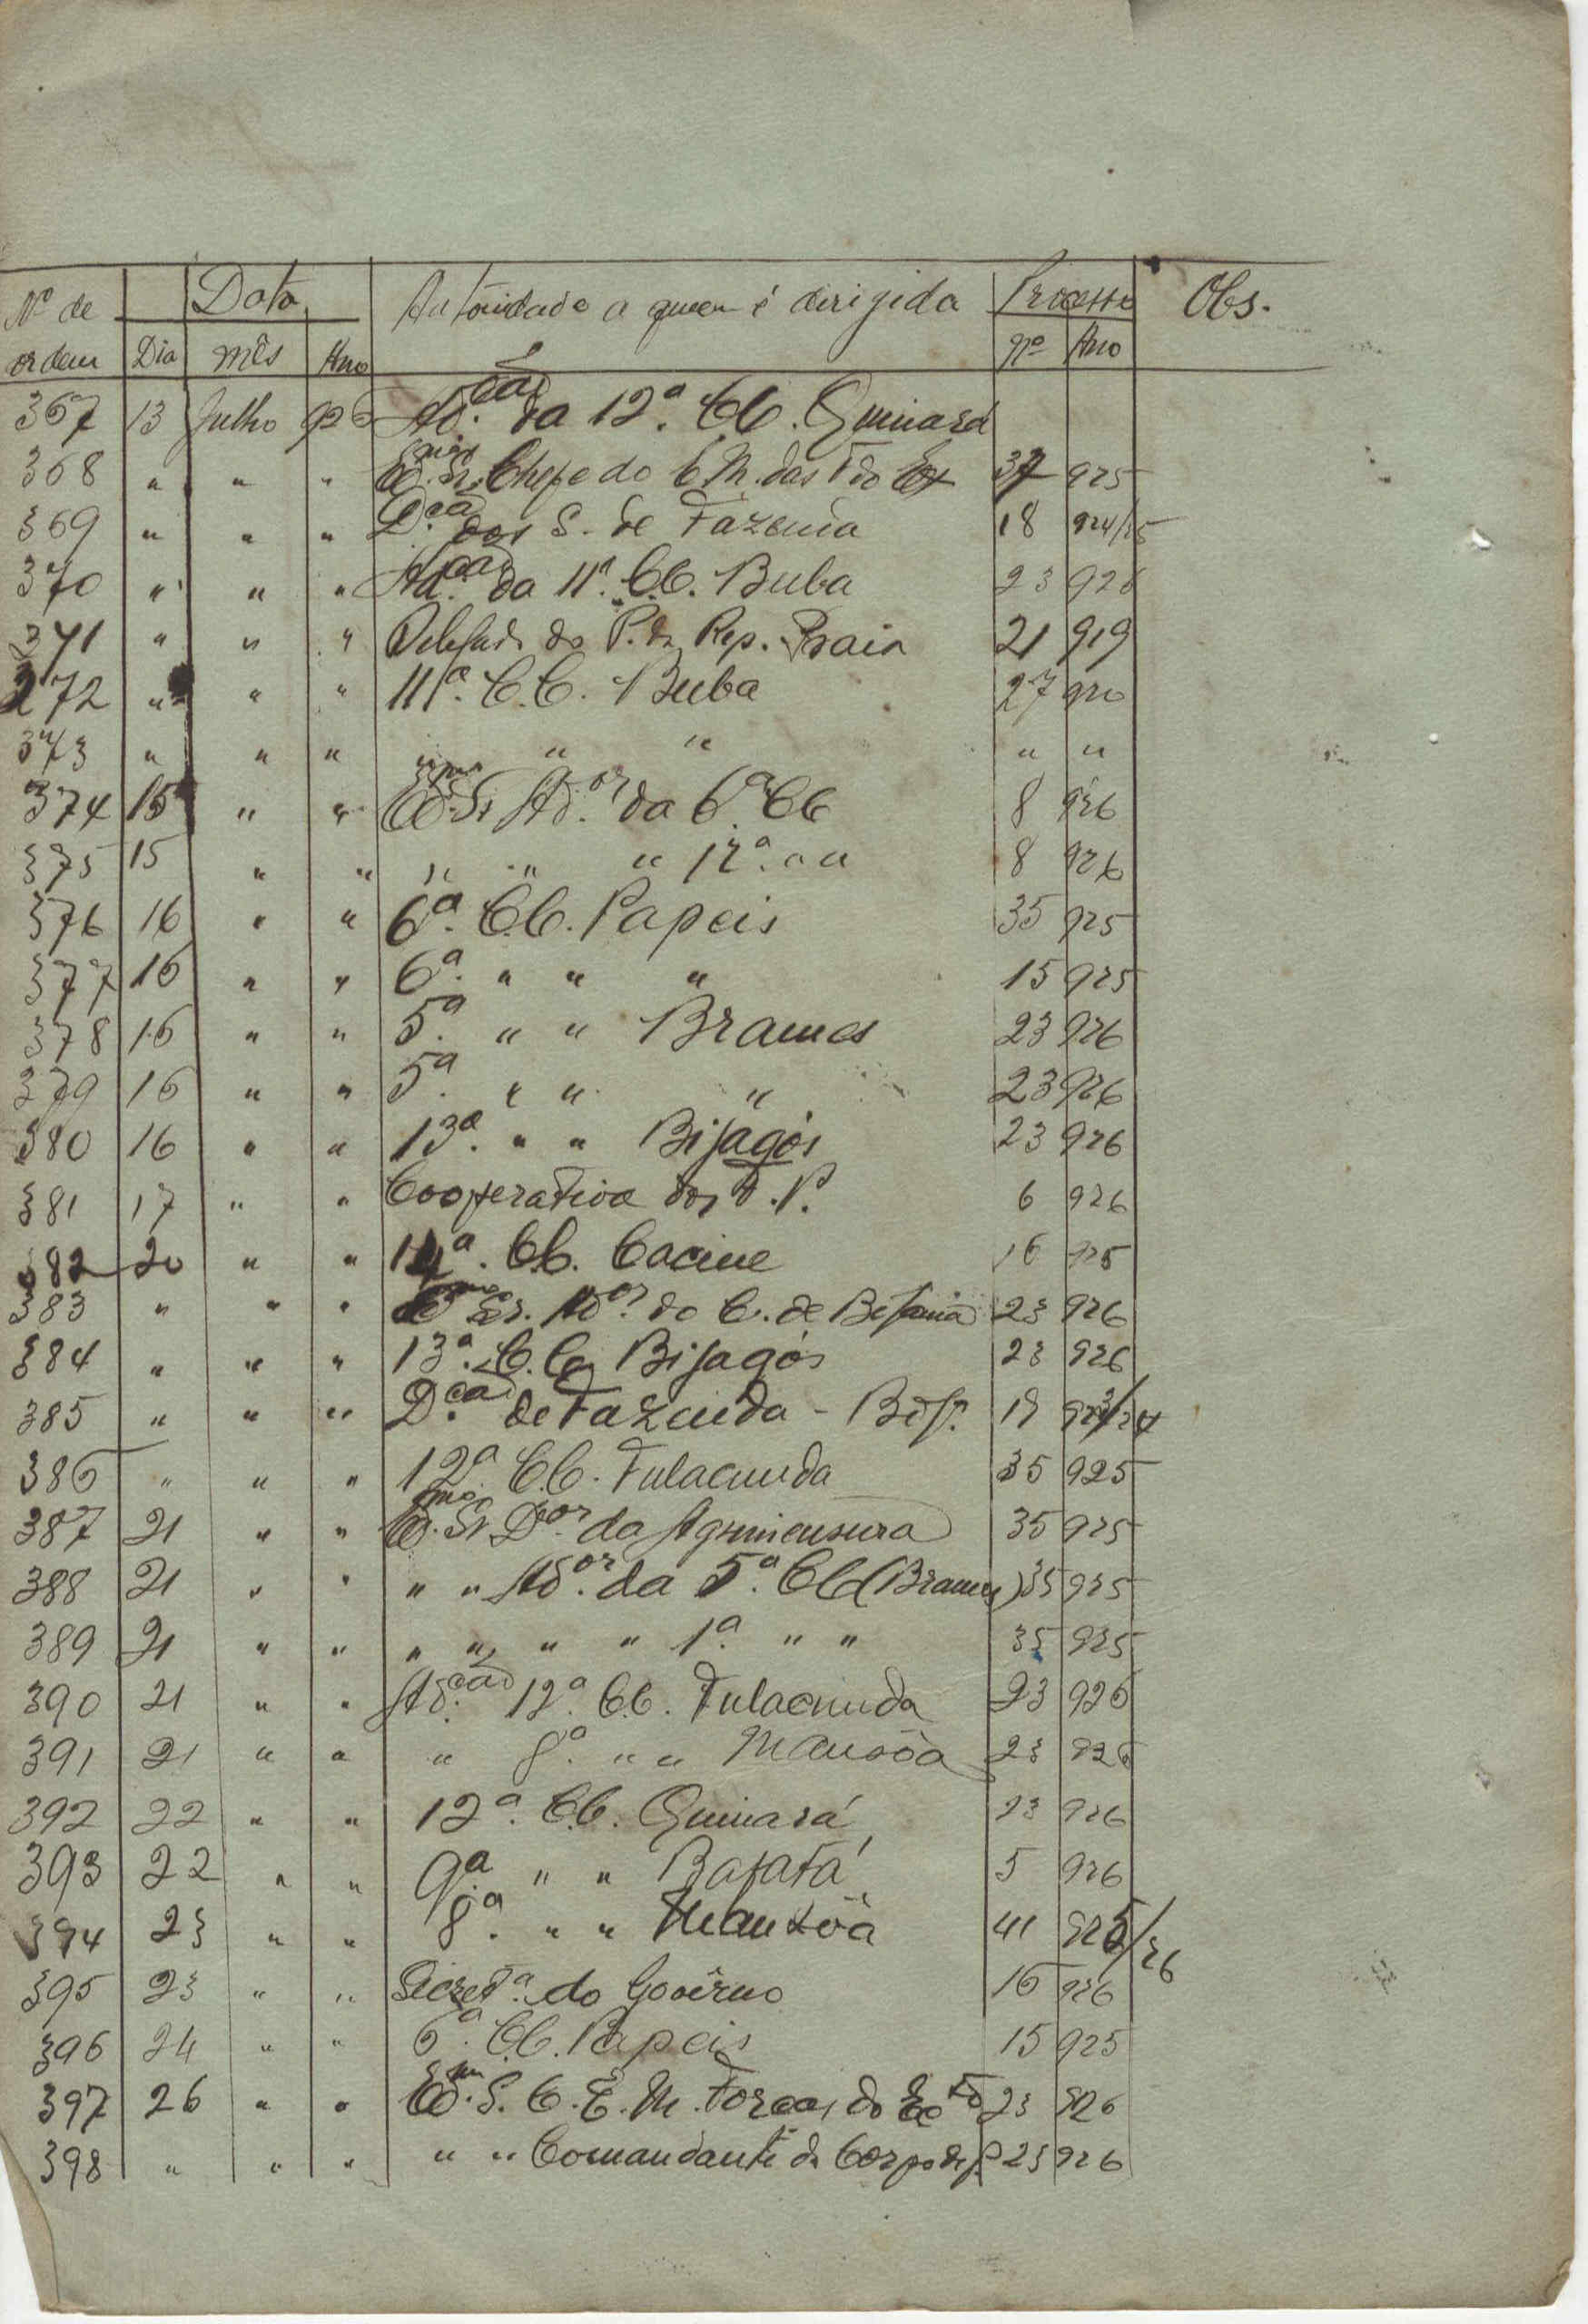 Nº de Data Autoridade a quem é dirigida Processo Obs.
ordem Dia mês Ano nº Ano
367 13 Julho 926 Ad.ção da 12ª. CC. Quinará
368 " " " Exmo Sr. Chefe do E.M. das F. do 37 925
369 " " " D.ção dos S. de Fazenda 18 924/25
370 " " " Ad.ção da 11ª. C.C. Buba 23 926
371 " " " Delegado do P. da Rep. Praia 21 919
372 " " " 11ª. C.C. Buba 27 920
373 " " " " " " " "
374 15 " " Exmo Sr Ad.or da 6ª CC 8 926
375 15 " " " " " 12ª. " " 8 926
376 16 " " 6ª. C.C. Papeis 35 925
377 16 " " 6ª. " " " 15 925
378 16 " " 5ª. " " Brames 23 926
379 16 " " 5ª. " " " 23 926
380 16 " " 13ª. " " Bijagós 23 926
381 17 " " Cooperativa dos F.P. 6 926
382 20 " " 14ª. C.C. Cacine 16 925
383 " " " Exmo Sr. Ad.or do C. de 23 926
384 " " " 13ª. C.C. Bijagós 23 926
385 " " " D.ção de Fazenda - 19 923/24
386 " " " 12ª. C.C. Fulacunda 35 925
387 21 " " Exmo. Sr D.or da Agrimensura 35 925
388 21 " " " " Ad.or da 5ª. CC (Brames) 35 925
389 21 " " " " " " 1ª. " " 35 925
390 21 " " Ad.ção 12ª. C.C. Fulacunda 23 926
391 21 " " " 8ª. " " Mansôa 23 926
392 22 " " 12ª. C.C. Quinará 23 926
393 22 " " 9ª. " " Bafatá 5 926
394 23 " " 8ª. " " Mansôa 41 925/26
395 23 " " Secretª. do Govêrno 16 926
396 24 " " 6ª. C.C. Papeis 15 925
397 26 " " Exmo. S. C. E. M. Forças do 23 926
398 " " " " " Comandante do Corpo de P 23 926